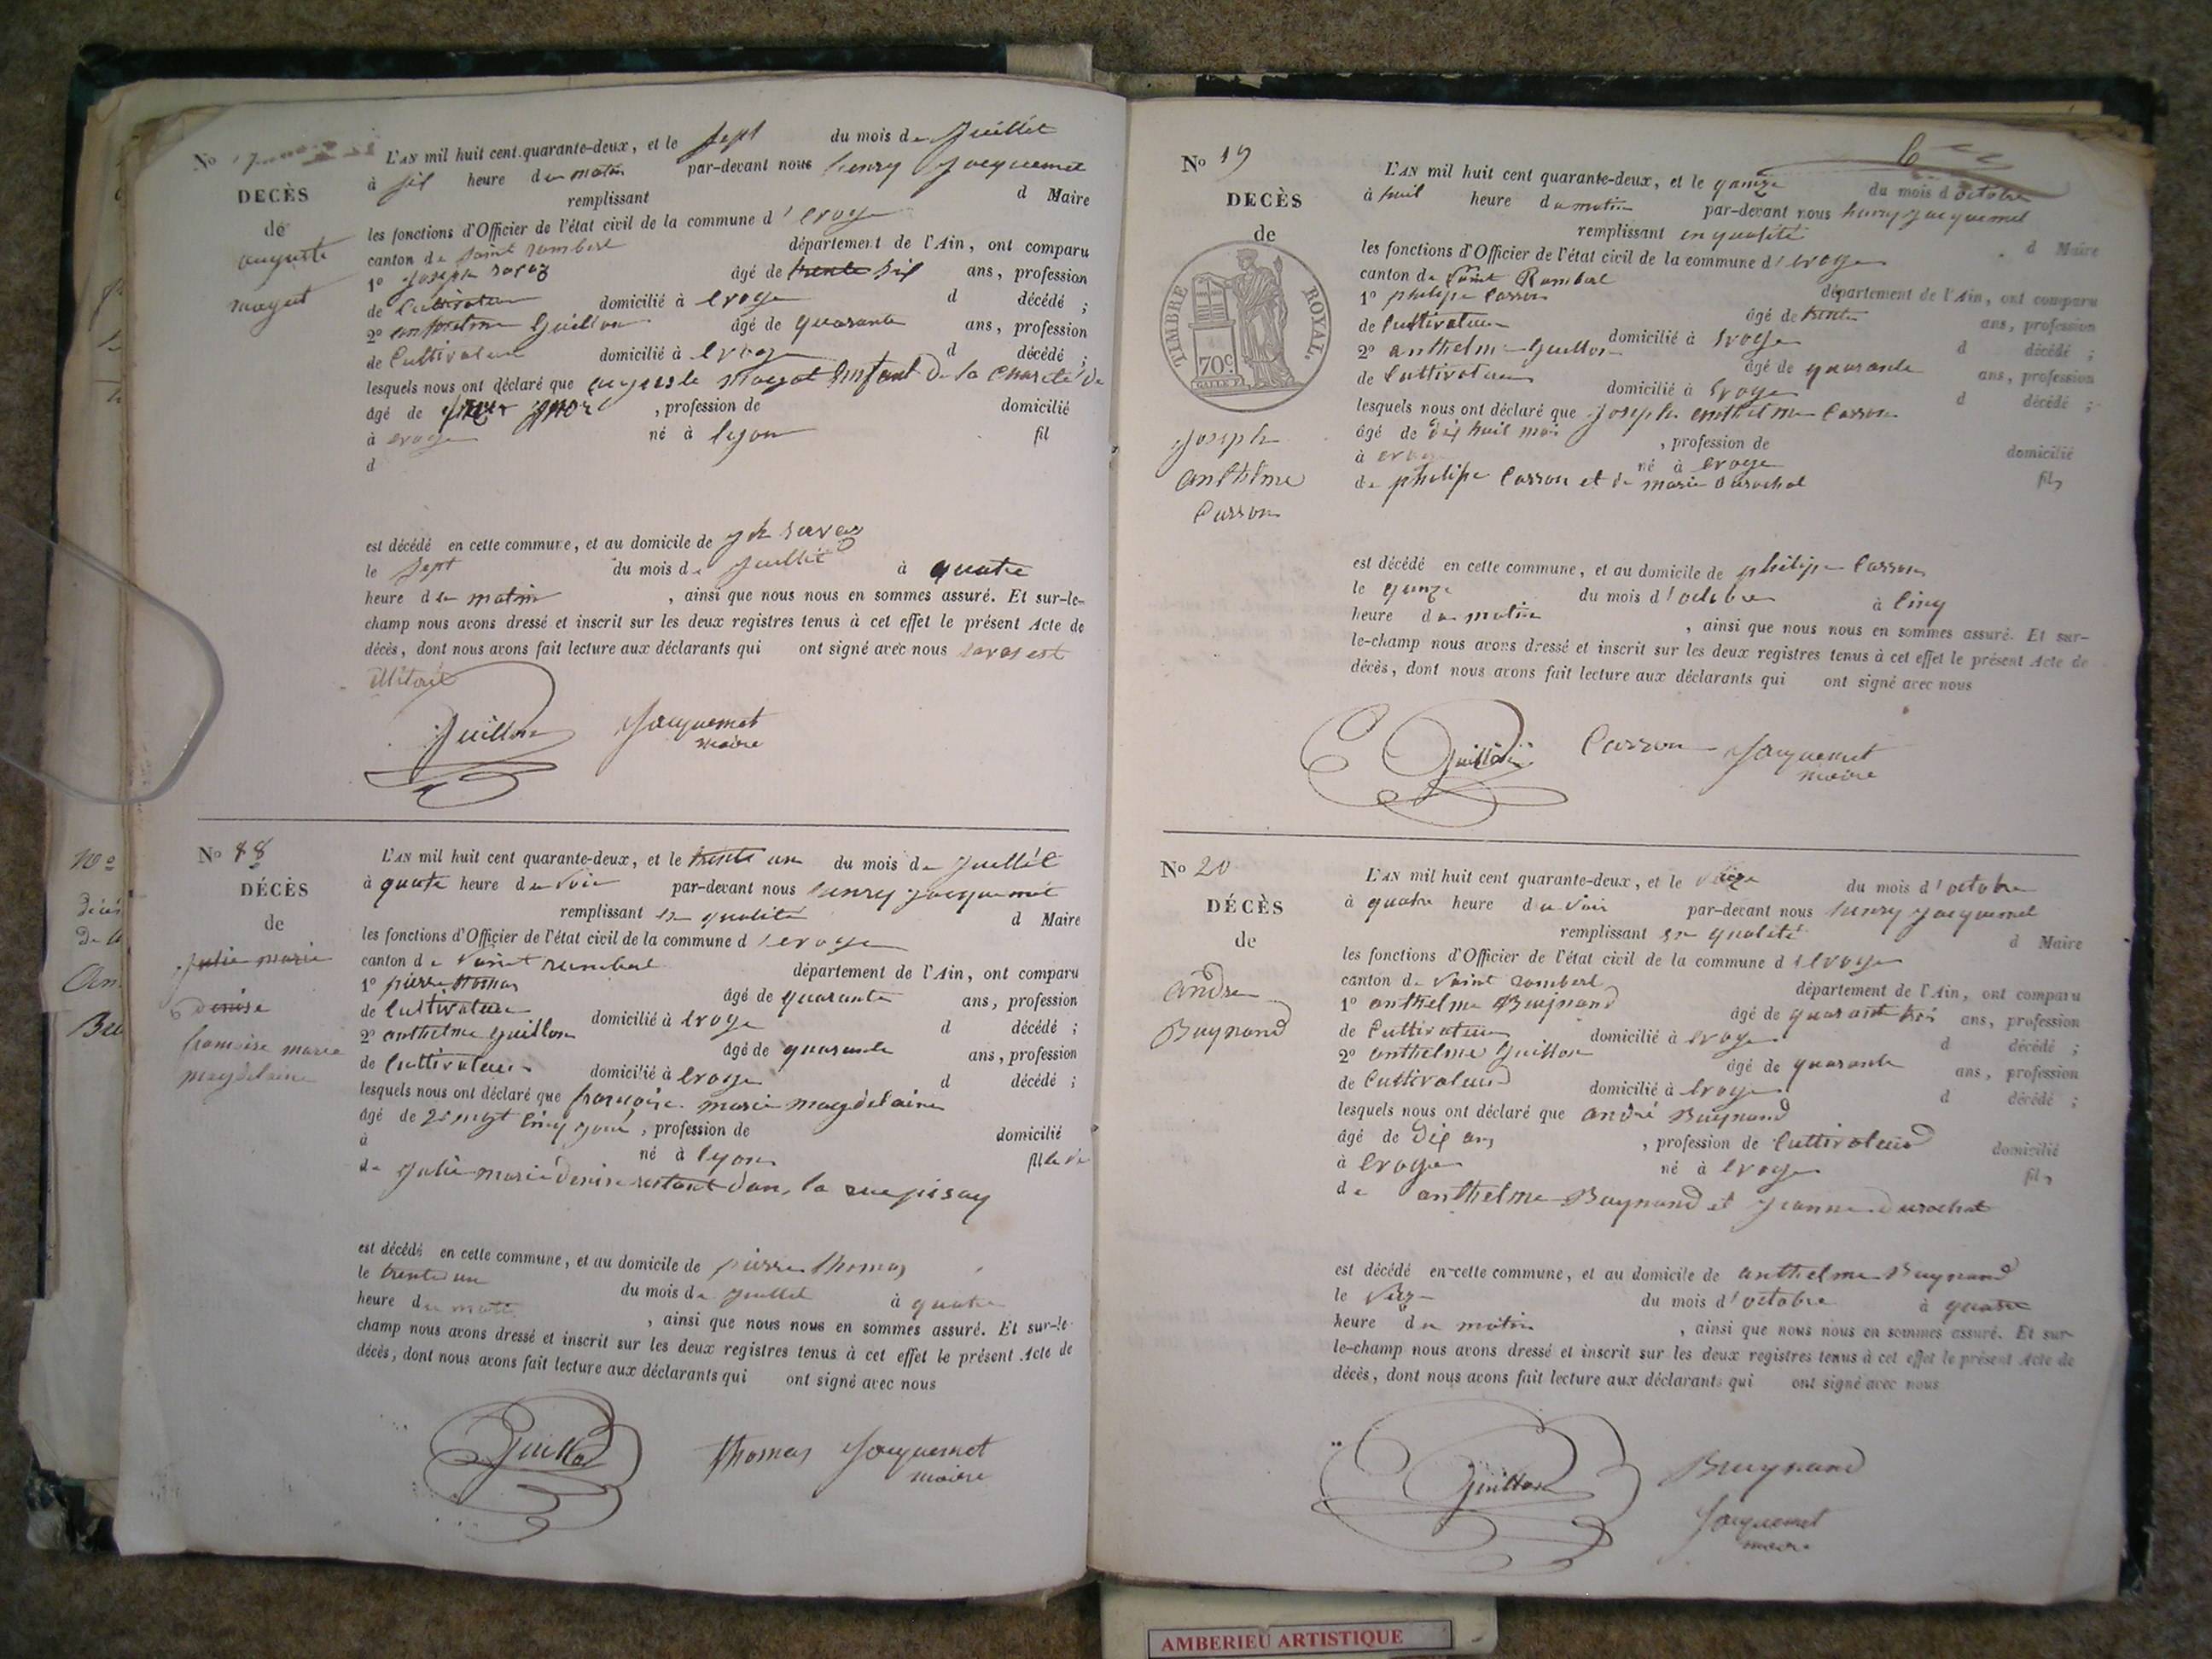 No 17
DECÈS
de
auguste
mayet
L'AN mil huit cent quarante-deux, et le sept du mois de Juillet
à six heure du matin par-devant nous henry Jacquemet
remplissant d Maire
les fonctions d'Officier de l'état civil de la commune d'evoge
canton de saint rambert département de l'Ain, ont comparu
1º Joseph savaz âgé de trente six ans, profession
de Cultivateur domicilié à evoge d décédé ;
2º anthelme Guillon âgé de quarante ans, profession
de Cultivateur domicilié à evoge d décédé ;
lesquels nous ont déclaré que auguste mayet Enfant de la Charité de
âgé de , profession de domicilié
à evoge né à lyon fil
d
est décédé en cette commune, et au domicile de jh savaz
le sept du mois de Juillet à quatre
heure du matin , ainsi que nous nous en sommes assuré. Et sur-le-
champ nous avons dressé et inscrit sur les deux registres tenus à cet effet le présent Acte de
décès, dont nous avons fait lecture aux déclarants qui ont signé avec nous savas est
illitairé
Guillon Jacquemet
maire
No 18
DÉCÈS
de
Julie marie
denise
francoise marie
magdelaine
L'AN mil huit cent quarante-deux, et le trente un du mois de Juillet
à quatre heure du soir par-devant nous henry jacquemet
remplissant en qualité d Maire
les fonctions d'Officier de l'état civil de la commune d'evoge
canton de saint rambert département de l'Ain, ont comparu
1º pierre thomas âgé de quarante ans, profession
de Cultivateur domicilié à evoge d décédé ;
2º anthelme guillon âgé de quarante ans, profession
de Cultivateur domicilié à evoge d décédé ;
lesquels nous ont déclaré que francoise marie magdelaine
âgé de vingt cinq jour , profession de domicilié
à né à lyon fille de
de Julie marie denise restant dans la rue pisay
est décédé en cette commune, et au domicile de pierre thomas
le trente un du mois de juillet à quatre
heure du matin , ainsi que nous nous en sommes assuré. Et sur-le
champ nous avons dressé et inscrit sur les deux registres tenus à cet effet le présent Acte de
décès, dont nous avons fait lecture aux déclarants qui ont signé avec nous
Guillon thomas Jacquemet
maire
No 19
DECÈS
de
TIMBRE ROYAL.
70c
Joseph
anthelme
Carron
L'AN mil huit cent quarante-deux, et le quinze du mois d'octobre
à huit heure du matin par-devant nous henry jacquemet
remplissant en qualité d Maire
les fonctions d'Officier de l'état civil de la commune d'evoge
canton de saint Rambert département de l'Ain, ont comparu
1º philipe Carron âgé de trente ans, profession
de Cultivateur domicilié à evoge d décédé ;
2º anthelme Guillon âgé de quarante ans, profession
de Cultivateur domicilié à evoge d décédé ;
lesquels nous ont déclaré que Joseph anthelme Carron
âgé de dix huit mois , profession de domicilié
à evoge né à evoge fils
de philipe Carron et de marie durochat
est décédé en cette commune, et au domicile de philipe Carron
le quinze du mois d'octobre à Cinq
heure du matin , ainsi que nous nous en sommes assuré. Et sur-
le-champ nous avons dressé et inscrit sur les deux registres tenus à cet effet le présent Acte de
décès, dont nous avons fait lecture aux déclarants qui ont signé avec nous
Guillon Carron Jacquemet
maire
No 20
DÉCÈS
de
andre
Buynand
L'AN mil huit cent quarante-deux, et le seize du mois d'octobre
à quatre heure du soir par-devant nous henry jacquemet
remplissant en qualité d Maire
les fonctions d'Officier de l'état civil de la commune d'evoge
canton de saint rambert département de l'Ain, ont comparu
1º anthelme Buynand âgé de quarante trois ans, profession
de Cultivateur domicilié à evoge d décédé ;
2º anthelme guillon âgé de quarante ans, profession
de Cultivateur domicilié à evoge d décédé ;
lesquels nous ont déclaré que andré Buynand
âgé de dix ans , profession de Cultivateur domicilié
à evoge né à evoge fils
de anthelme Buynand et jeanne durochat
est décédé en cette commune, et au domicile de anthelme Buynand
le seize du mois d'octobre à quatre
heure du matin , ainsi que nous nous en sommes assuré. Et sur-
le-champ nous avons dressé et inscrit sur les deux registres tenus à cet effet le présent Acte de
décès, dont nous avons fait lecture aux déclarants qui ont signé avec nous
Guillon Buynand
Jacquemet
maire
AMBERIEU ARTISTIQUE